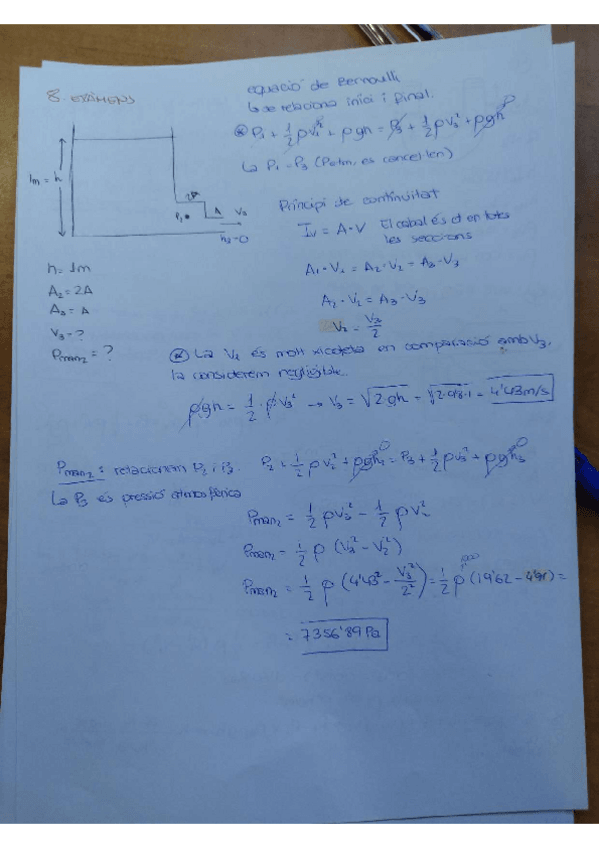 8. EXÀMENS
equació de Bernoulli
↳ se relaciona inici i final.
⊗ P₁ + 1/2 ρv₁² + ρgh = P₃ + 1/2 ρv₃² + ρgh⁰
↳ P₁ = P₃ (Patm, es cancel·len)
1m = h
2A
P₂•
A
V₃
h₃=0
Principi de continuïtat
Iv = A·V El cabal és ct en totes
les seccions
A₁·V₁ = A₂·V₂ = A₃·V₃
A₂·V₂ = A₃·V₃
V₂ = V₃/2
h = 1m
A₂ = 2A
A₃ = A
V₃ = ?
Pman₂ = ?
⊗ La V₁ és molt xicoteta en comparació amb V₃,
la considerem negligible.
ρgh = 1/2 · ρV₃² → V₃ = √2·gh = √2·9'8·1 = 4'43m/s
Pman₂: relacionem P₂ i P₃. P₂ + 1/2 ρv₂² + ρgh₂⁰ = P₃ + 1/2 ρv₃² + ρgh₃⁰
↳ P₃ és pressió atmosfèrica
Pman₂ = 1/2 ρv₃² - 1/2 ρv₂²
Pman₂ = 1/2 ρ (V₃² - V₂²)
Pman₂ = 1/2 ρ (4'43² - V₃²/2²) = 1/2 ρ (19'62 - 4'91) =
= 7356'89 Pa